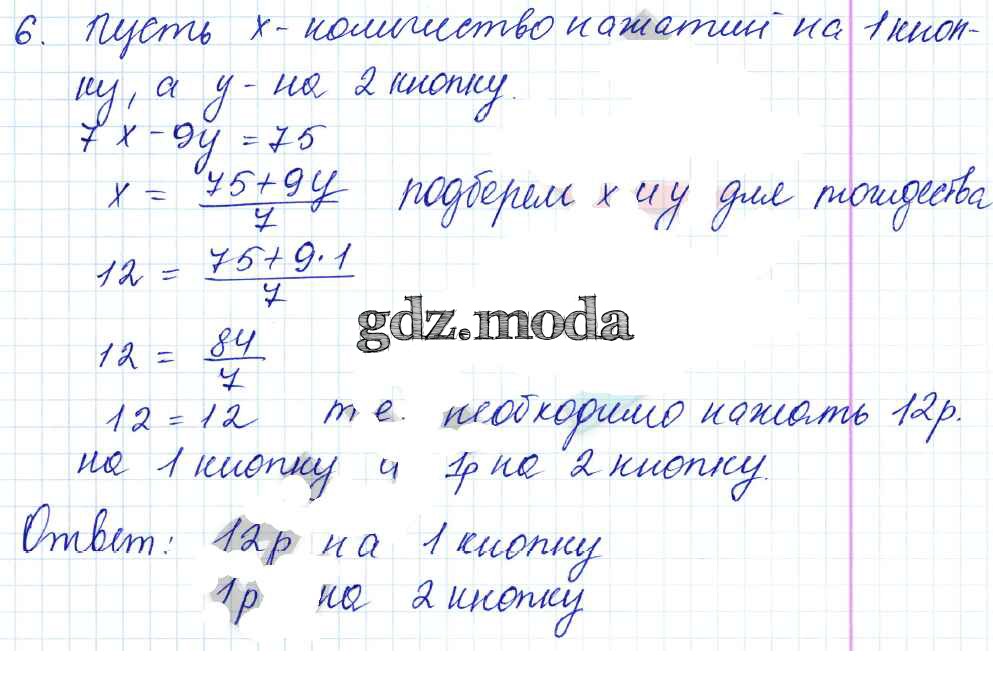 6. Пусть x - количество нажатий на 1 кноп-
ку, а y - на 2 кнопку.
7x - 9y = 75
x = (75 + 9y)/7 подберем x и y для тождества
12 = (75 + 9·1)/7
gdz.moda
12 = 84/7
12 = 12 т.е. необходимо нажать 12р.
на 1 кнопку и 1р на 2 кнопку.
Ответ: 12р на 1 кнопку
1р на 2 кнопку